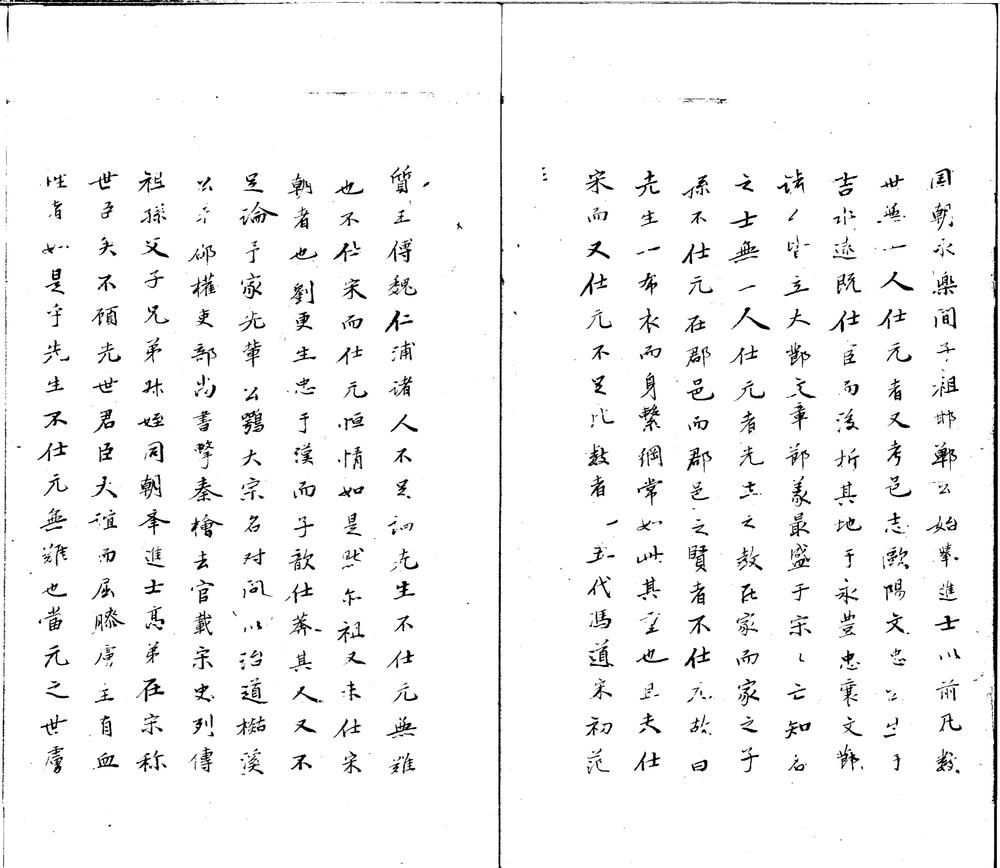 国朝永樂間予祖邯鄲公始舉進士以前凡数
世無一人仕元者又考邑志歐陽文忠公生于
吉水遠既仕臣而後析其地于永豊忠襄文節
諸〻皆立大節文章節義最盛于宋〻亡知名
之士無一人仕元者先生之教在家而家之子
孫不仕元在郡邑而郡邑之賢者不仕元故曰
先生一布衣而身繫綱常如此其重也且夫仕
宋而又仕元不足比数者一五代馮道宋初范
質王傅魏仁浦诸人不足訶先生不仕元無难
也不仕宋而仕元恒情如是然尔祖又未仕宋
朝者也劉更生忠于漢而子歆仕莽其人又不
足論予家先軰公鶚大宗名对问以治道樾溪
公 邲權吏部尚書擊秦檜去官載宋史列傳
祖孫父子兄弟叔姪同朝举進士髙弟在宗称
世臣矣不顧先世君臣大誼而屈膝虜主有血
性者如是乎先生不仕元無难也當元之世虜